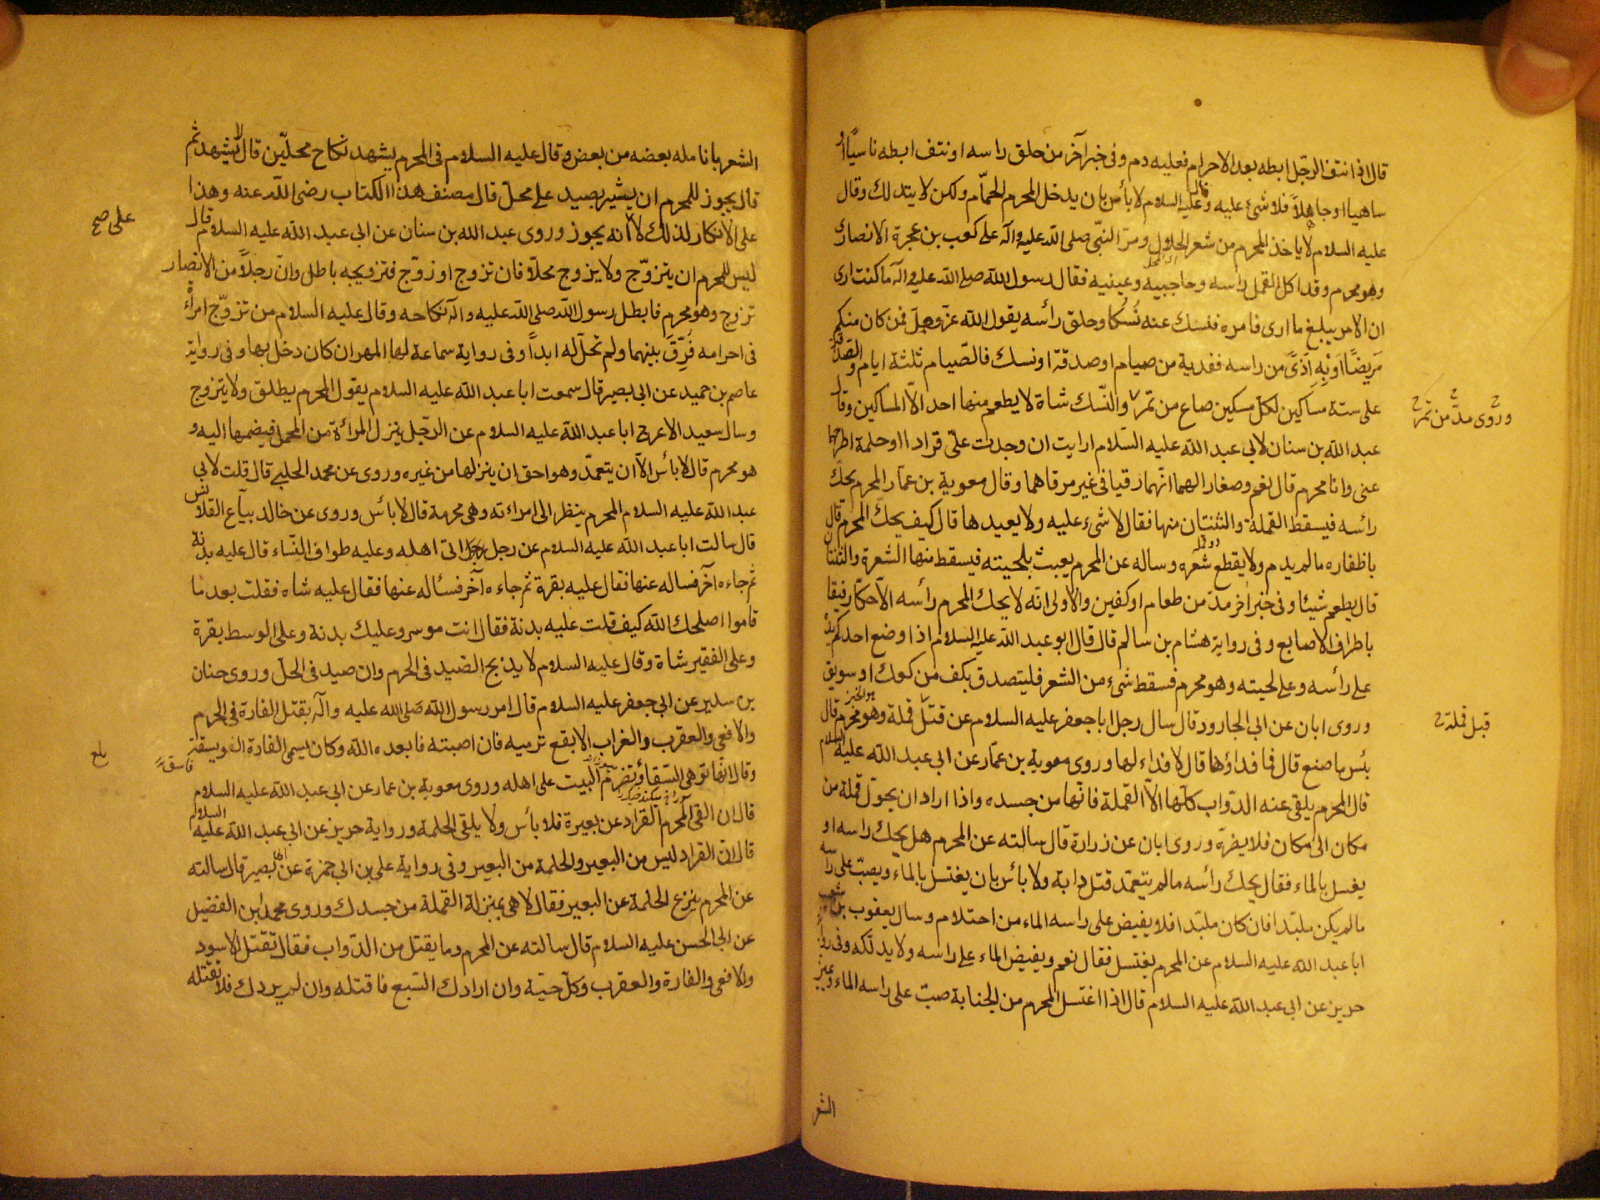 قال اذا نتف الرجل ابطه بعد الاحرام فعليه دم وفى خبر آخر من حلق راسه او نتف ابطه ناسيًا او
ساهيا او جاهلاً فلا شئ عليه وقال عليه السلام لا بأس بان يدخل المحرم الحمّام ولكن لا يتدلك وقال
عليه السلام لا ياخذ المحرم من شعر الحلال ومرّ النبّى صلى الله عليه وآله على كعب بن عجرة الانصارى
وهو محرم وقد اكل القمل راسه وحاجبيه وعينيه فقال رسول الله صلى الله عليه وآله ما كنت ارى
ان الامر يبلغ ما ارى فامره فنسك عنه نُسُكا وحلق رأسه يقول الله عزّ وجلّ فمن كان منكم
مَريضًا اَوْ بِهِ اَذًى من راسه ففدية من صيام او صدقة او نسك فالصّيام ثلثة ايام والصّدقة
على ستة مساكين لكلّ مسكين صاع من تمر والنّسك شاة لا يطعم منها احد الاّ المساكين وقال
وروى مدّ من تمر
عبد الله بن سنان لابى عبد الله عليه السّلام ارايت ان وجدت علىّ قرادا او حلمة اطرحهما
عنى وانا محرم قال نعم وصغار لهما انّهما رقيا فى غير مرقاهما وقال معوية بن عمّار المحرم يحكّ
رأسه فيسقط القملة والثنتان منها فقال لا شىء عليه ولا يعيدها قال كيف يحكّ المحرم قال
باظفاره ما لم يدم ولا يقطع شعره وساله عن المحرم يعبث بلحيته فيسقط منها الشعرة والثنتان
قال يطعم شيئا وفى خبر آخر مدّ من طعام او كفين والاولى انّه لا يحك المحرم رأسه الاّ حكّا رفيقا
باطراف الاصابع وفى رواية هشام بن سالم قال قال ابو عبد الله عليه السلام اذا وضع احدكم يده
على رأسه وعلى لحيته وهو محرم فسقط شىء من الشعر فليتصدق بكف من كعك او سويق
وروى ابان عن ابى الجارود قال سال رجل ابا جعفر عليه السلام عن قتل قملة وهو محرم قال
قبل قملة
بئس ما صنع قال فما فداؤها قال لا فداء لها وروى معوية بن عمّار عن ابى عبد الله عليه السلام
قال المحرم يلقى عنه الدوّاب كلّها الاّ القملة فانّها من جسده واذا اراد ان يحوّل قملة من
مكان الى مكان فلا يضرّه وروى ابان عن زرارة قال سالته عن المحرم هل يحك راسه او
يغسل بالماء فقال يحك رأسه ما لم يتعمّد قتل دابة ولا بأس بان يغتسل بالماء ويصبّ على راسه
ما لم يكن ملبّدا فان كان ملبّدا فلا يفيض على راسه الماء من احتلام وسال يعقوب بن شعيب
ابا عبد الله عليه السلام عن المحرم يغتسل فقال نعم ويفيض الماء على راسه ولا يدلكه وفى رواية
حريز عن ابى عبد الله عليه السلام قال اذا اغتسل المحرم من الجنابة صبّ على راسه الماء ويميز
الشعر
الشعر بانامله بعضه من بعض وقال عليه السلام فى المحرم يشهد نكاح محلّين قال لا يشهد ثم
قال يجوز للمحرم ان يشير بصيد على محلّ قال مصنف هذا الكتاب رضى الله عنه وهذا
على الانكار لذلك لا انه يجوز وروى عبد الله بن سنان عن ابى عبد الله عليه السلام قال
على صح
ليس للمحرم ان يتزوّج ولا يزوج محلاّ فان تزوج او زوّج فتزويجه باطل وان رجلاً من الانصار
تزوج وهو محرم فابطل رسول الله صلى الله عليه وآله نكاحه وقال عليه السلام من تزوّج امرأة
فى احرامه فُرِّقَ بينهما ولم تحلّ له ابداً وفى رواية سماعة لها المهر ان كان دخل بها وفى رواية
عاصم بن حميد عن ابى بصير قال سمعت ابا عبد الله عليه السلام يقول المحرم يطلق ولا يتزوج
وسال سعيد الاعرج ابا عبد الله عليه السلام عن الرجّل ينزل المرأة من المحمل فيضمها اليه و
هو محرم قال لا بأس الاّ ان يتعمدّ وهو احق ان ينزلها من غيره وروى عن محمد الحلبى قال قلت لابى
عبد الله عليه السلام المحرم ينظر الى امراته وهى محرمة قال لا بأس وروى عن خالد بيّاع القلانس
قال سالت ابا عبد الله عليه السلام عن رجل اتى اهله وعليه طواف النّساء قال عليه بدنة
ثم جاءه آخر فساله عنها فقال عليه بقرة ثم جاءه آخر فسئاله عنها فقال عليه شاه فقلت بعد ما
قاموا اصلحك الله كيف قلت عليه بدنة فقال انت موسر وعليك بدنة وعلى الوسط بقرة
وعلى الفقير شاة وقال عليه السلام لا يذبح الصّيد فى الحرم وان صيد فى الحلّ وروى حنان
بن سدير عن ابى جعفر عليه السلام قال امر رسول الله صلى الله عليه وآله بقتل الفارة فى الحرم
والافعى والعقرب والغراب الابقع ترميه فان اصبته فابعده الله وكان يسمى الفارة الفويسقة
وقال انّها توهى السّقاء وتضرم البيت على اهله وروى معوية بن عمار عن ابى عبد الله عليه السلام
قال ان القى المحرم القراد عن بعيره فلا بأس ولا يلقى الحلمة ورواية حريز عن ابى عبد الله عليه السلام
قال انّ القراد ليس من البعير والحلمة من البعير وفى رواية على بن ابى حمزة عن ابى بصير قال سالته
عن المحرم ينزع الحلمة عن البعير فقال لا هى بمنزلة القملة من جسدك وروى محمد بن الفضيل
عن ابى الحسن عليه السلام قال سالته عن المحرم وما يقتل من الدّواب فقال تقتل الاسود
والافعى والفارة والعقرب وكلّ حيّة وان ارادك السّبع فاقتله وان لم يردك فلا تقتله